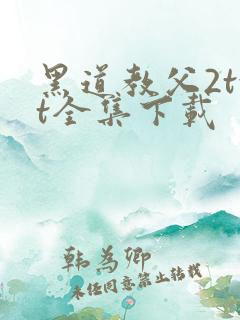 黑道教父2tx
t全集下载
韩为卿
未经同意禁止转载